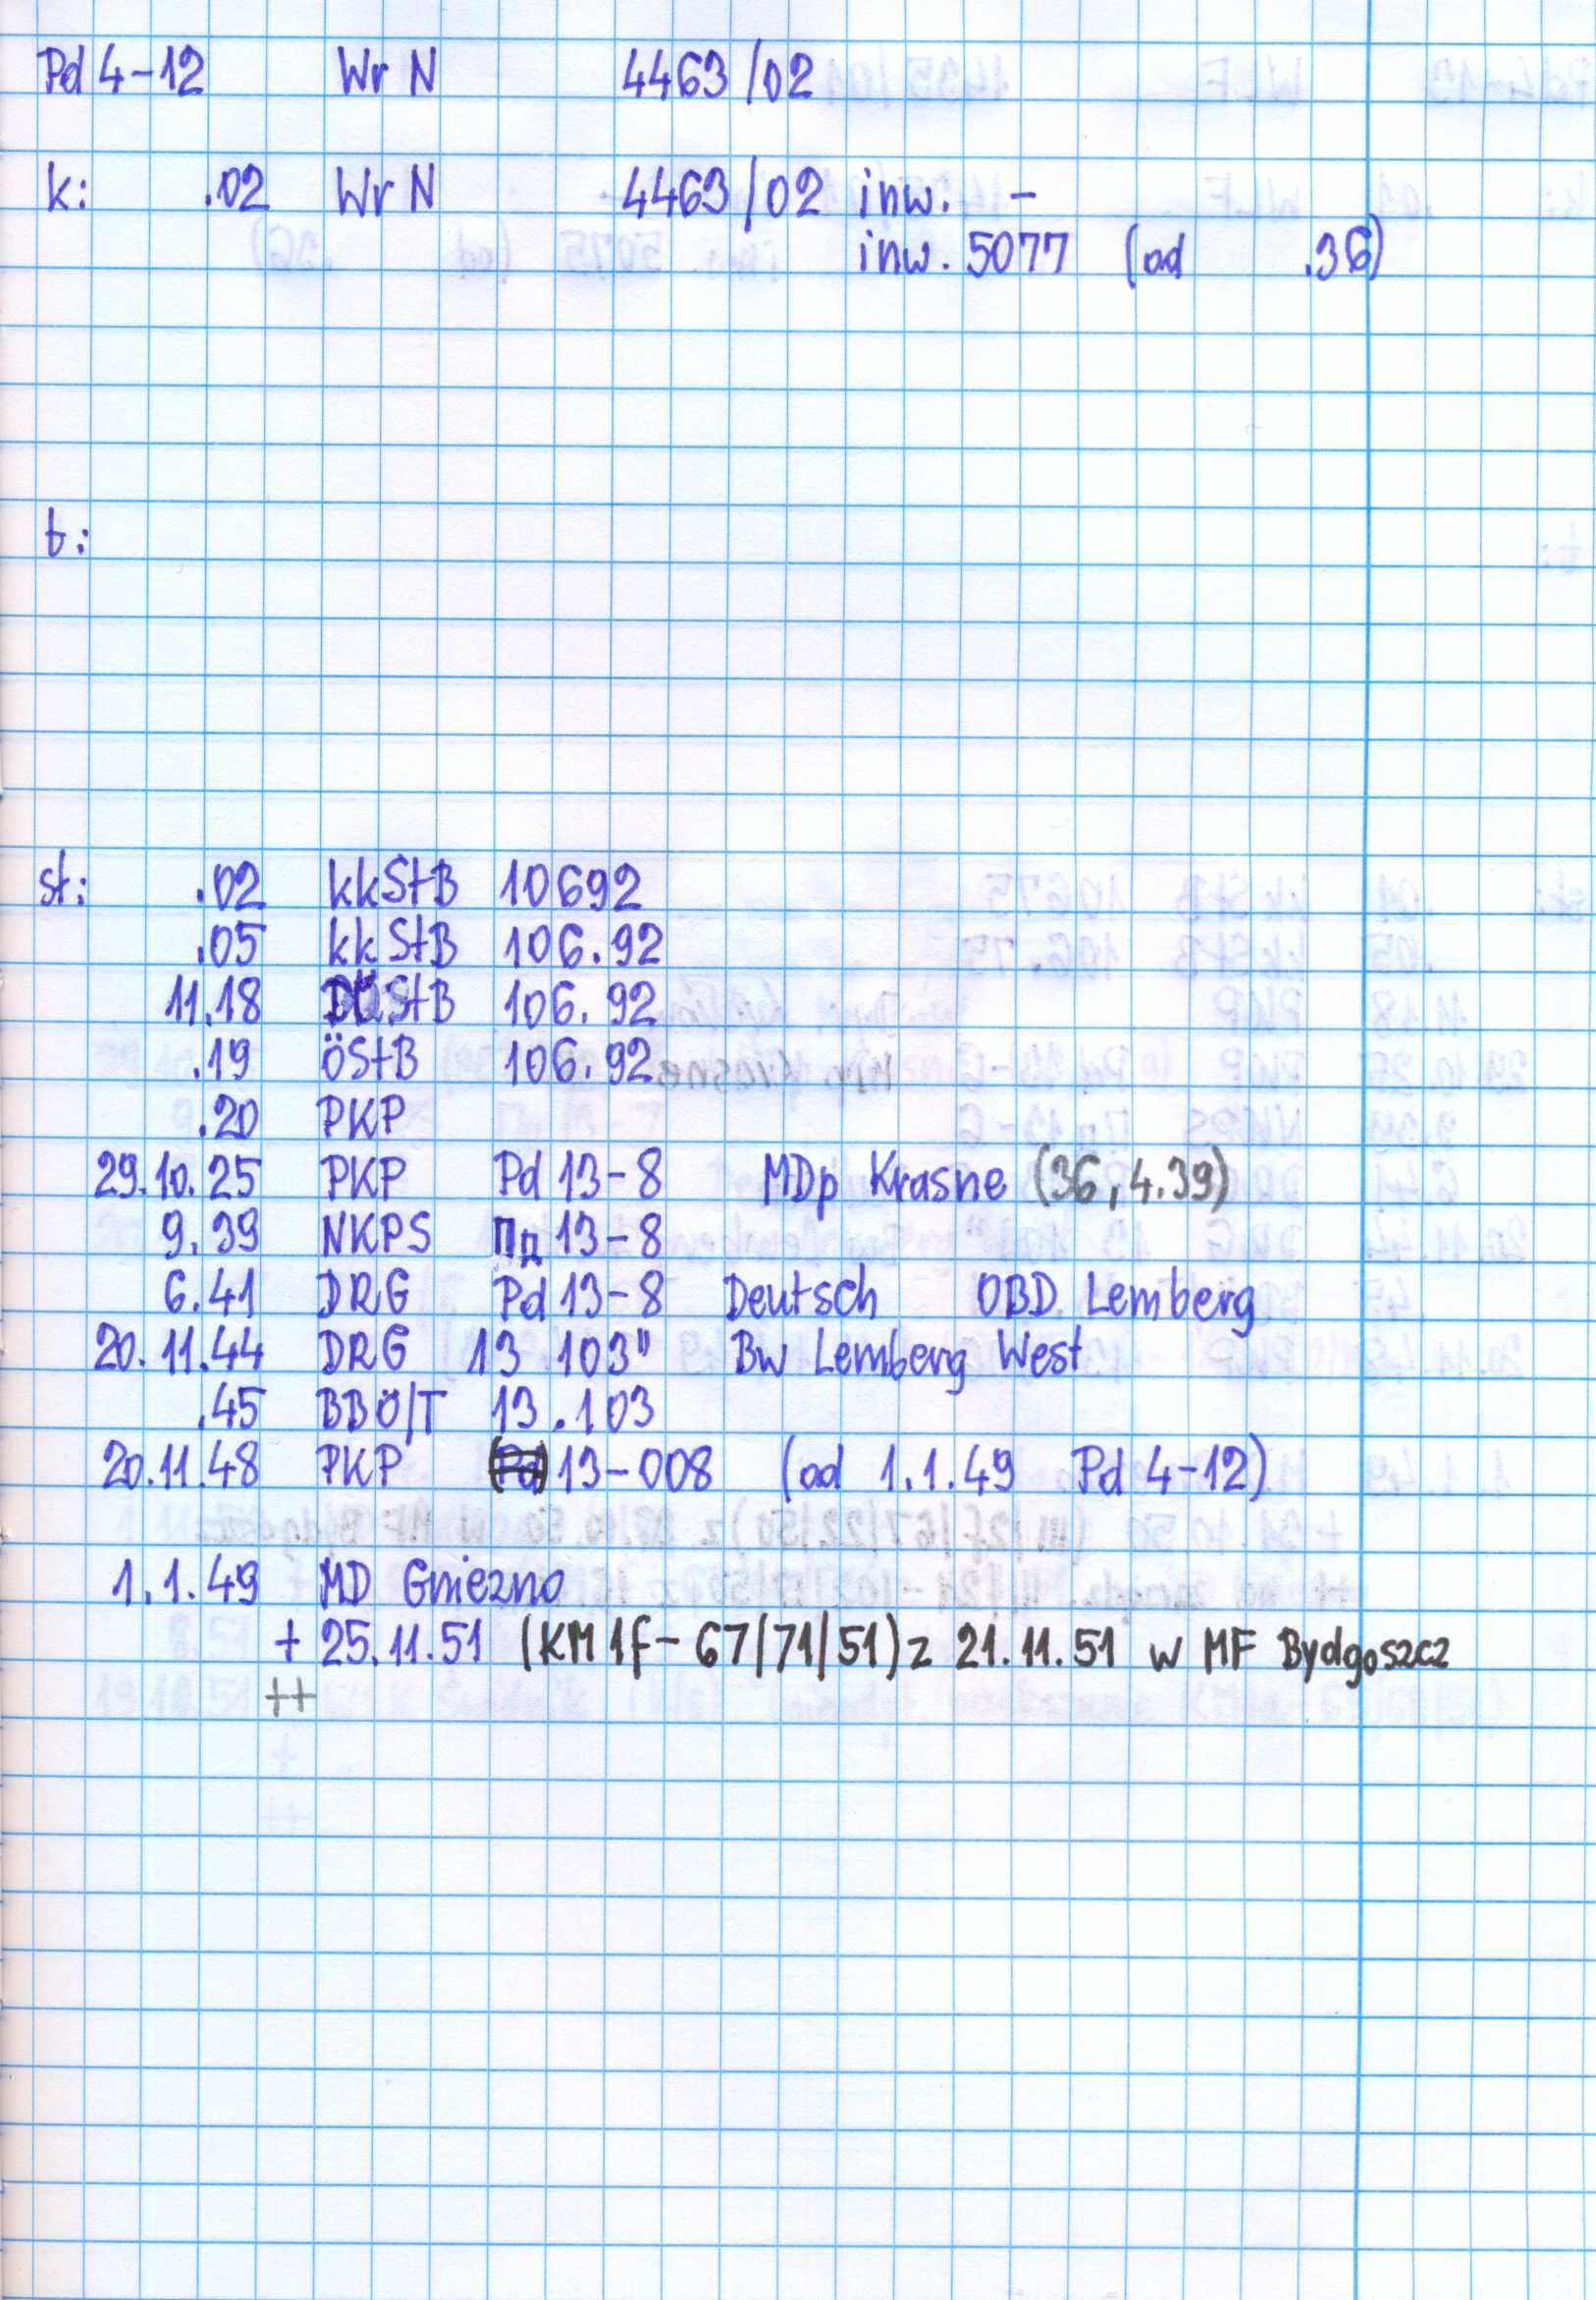 Pd 4-12 Wr N 4463/02
k: .02 Wr N 4463/02 inw. -
inw. 5077 (od .36)
t:
st: .02 kkStB 10692
.05 kkStB 106.92
11.18 DÖStB 106.92
.19 ÖStB 106.92
.20 PKP
29.10.25 PKP Pd 13-8 MDp Krasne (36, 4.39)
9.39 NKPS Пд 13-8
6.41 DRG Pd 13-8 Deutsch OBD Lemberg
20.11.44 DRG 13 103" Bw Lemberg West
.45 BBÖ/T 13.103
20.11.48 PKP (Pd) 13-008 (od 1.1.49 Pd 4-12)
1.1.49 MD Gniezno
+ 25.11.51 (KM 1f- 67/71/51) z 21.11.51 w MF Bydgoszcz
++